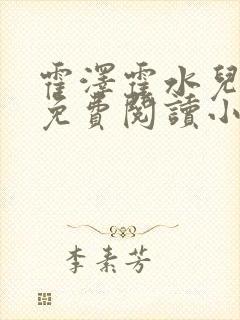 霍澤霍水兒
免費閱讀小
李素芳